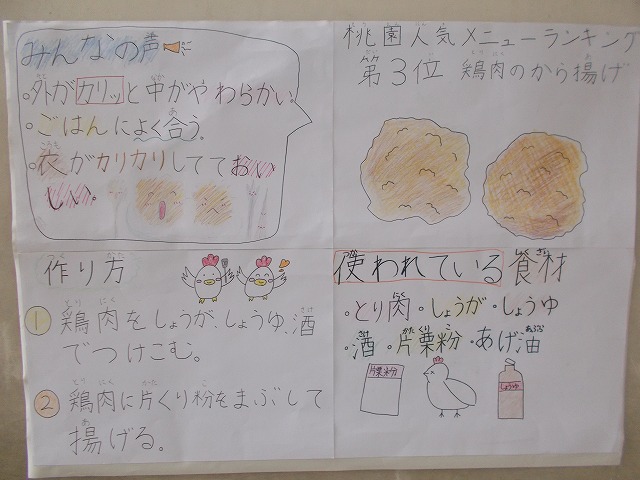 みんなの声
・外がカリッと中がやわらかい。
・ごはんによく合う。
・衣がカリカリしてておい
しい。
桃園人気メニューランキング
第3位 鶏肉のから揚げ
作り方
① 鶏肉をしょうが、しょうゆ、酒
でつけこむ。
② 鶏肉に片くり粉をまぶして
揚げる。
使われている食材
・とり肉・しょうが・しょうゆ
・酒・片栗粉・あげ油
片栗粉
しょうゆ